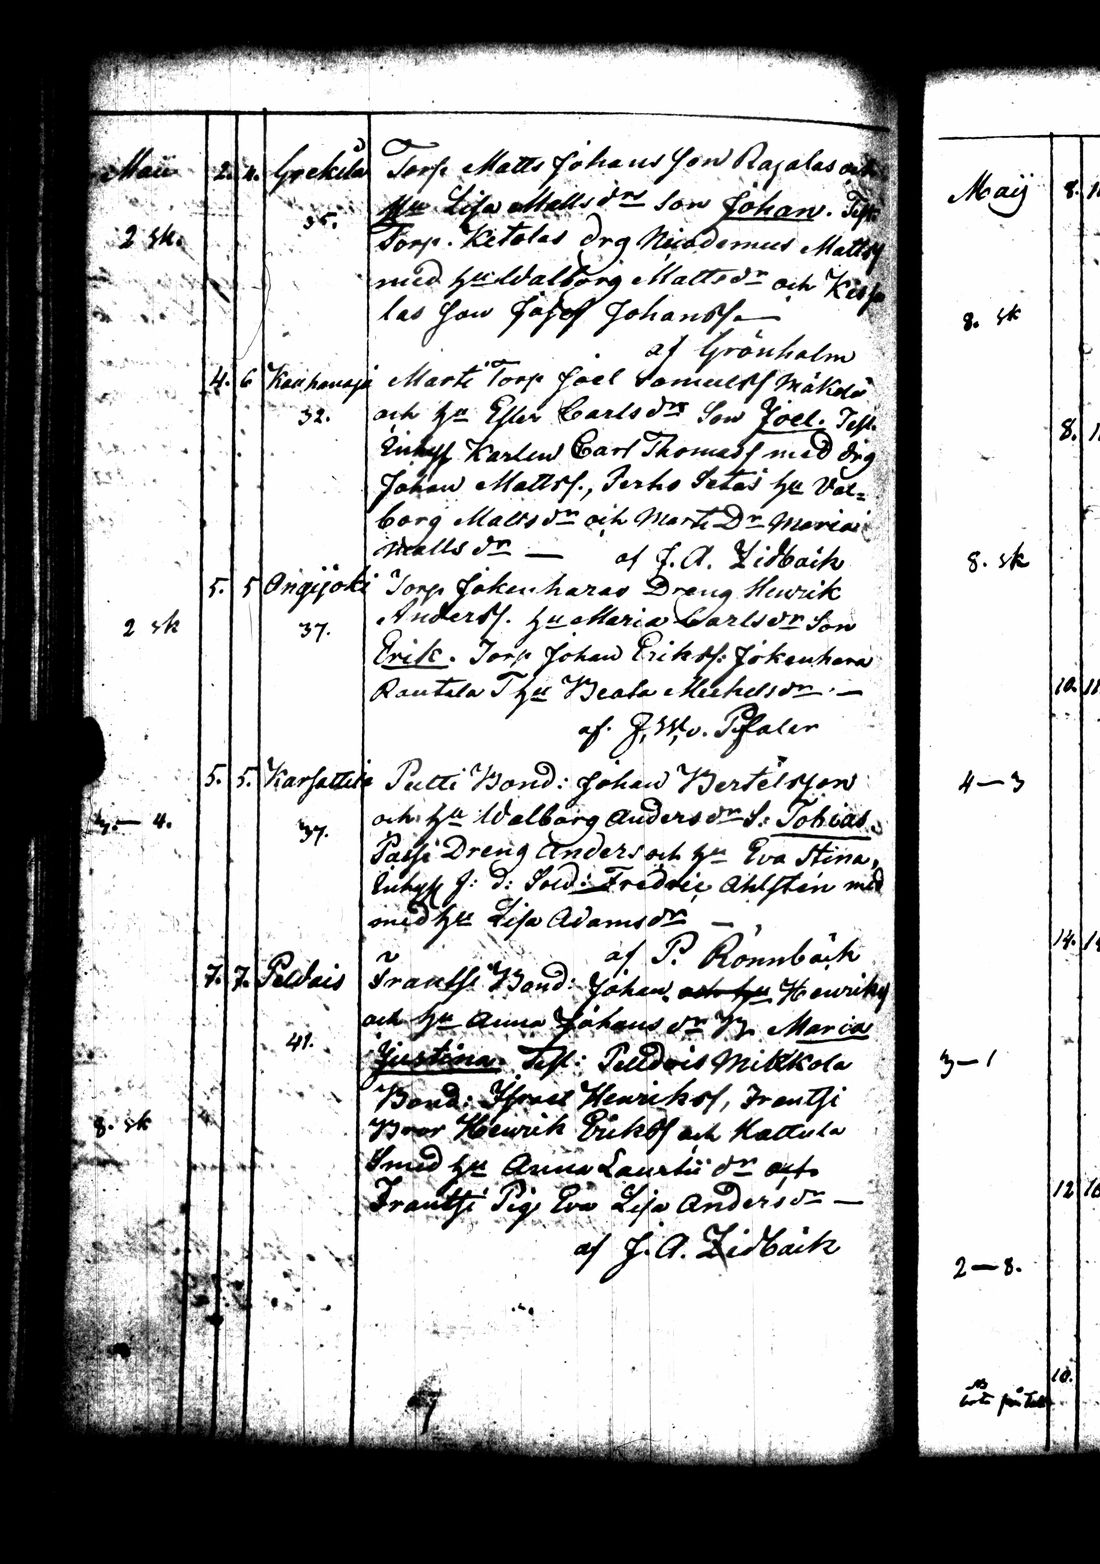 Maii 2. 4. Grekilä Torp. Matts Johans Son Ragalas och
35. hu Lisa Mattsdr Son Johan. Test.
2 sk. Torp. Ketolas drg Nicodemus Mattss
med hu Walborg Mattsdr och
las Son Josef Johanss. —
af Grönholm
4. 6 Kauhanoja Marti Torp Joel Samuelss Mäkelä
32. och hu Ester Carlsdr Son Joel. Test.
Inhys Karlen Carl Thomass med drg
Johan Mattss., Perho Setas hu Val=
borg Mattsdr och Marti Dr Maria
Mattsdr — af J. A. Zidbäck
5. 5 Ongijoki Torp Jokenharas Dreng Henrik
2 sk 37. Anderss. hu Maria Carlsdr Son
Erik. Torp Johan Erikss: Jokenhara
Rautila T hu Beata Michelsdr. —
af. J. W. v. Pfaler
5. 5. Karsattila Putti Bond: Johan Bertelsson
3. — 4. 37. och hu Walborg Andersdr S: Tobias.
Passi Dreng Anders och hu Eva Stina,
Inhys f: d: Sold: Fredric Ahlsten med
med hu Lisa Adamsdr —
af P. Rönnbäck
7. 7. Peldois Frantsi Bond: Johan och hu Henrikss
41. och hu Anna Johansdr B. Maria
Justina. Test: Pelldois Mikkola
Bond: Israel Henrikss, Frantsi
8. sk Bror Henrik Erikss och Kattula
Smed hu Anna Lauriidr
Frantsi Pig. Eva Lisa Andersdr —
af J. A. Zidbäck
Maij 8.
8. sk
8.
8. sk
10.
4 — 3
14.
3 — 1
12
2 — 8.
10.